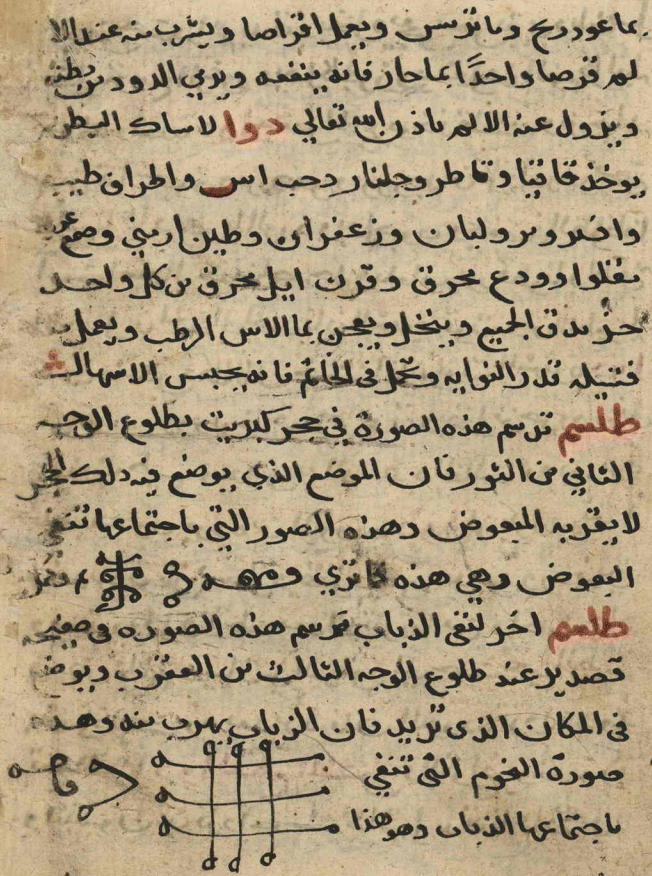 بما عود ريح وماترمس ويعمل اقراصا ويشرب منه عند الا
لم قرصا واحدًا بما حار فانه ينفعه ويرمي الدود من بطنه
ويزول عنه الالم باذن الله تعالي دوا لامساك البطن
يوخذ قاقيا وقاطر وجلنار وحب اس
وافيون ومر ولبان وزعفران وطين ارمني وصمغ
مقلوا وودع محرق وقرن ايل محرق من كل واحد
جز يدق الجميع وينخل ويعجن بما الاس الرطب ويعمل
فتيله قدر النوايه وتحمل في الخاتم فانه يحبس الاسهال
طلسم ترسم هذه الصورة في حجر كبريت بطلوع الوجه
الثاني من الثور فان الموضع الذي يوضع فيه دلك الحجر
لا يقربه البعوض وهذه الصور التي باجتماعها تنفي
البعوض وهي هذه كما تري
طلسم اخر لنفي الذباب ترسم هذه الصوره في صفيحه
قصدير عند طلوع الوجه الثالث من العقرب ويوضع
في المكان الذي تريد فان الذباب يهرب منه وهذه
صورة النجوم التي تنفي
باجتماعها الذباب وهو هذا